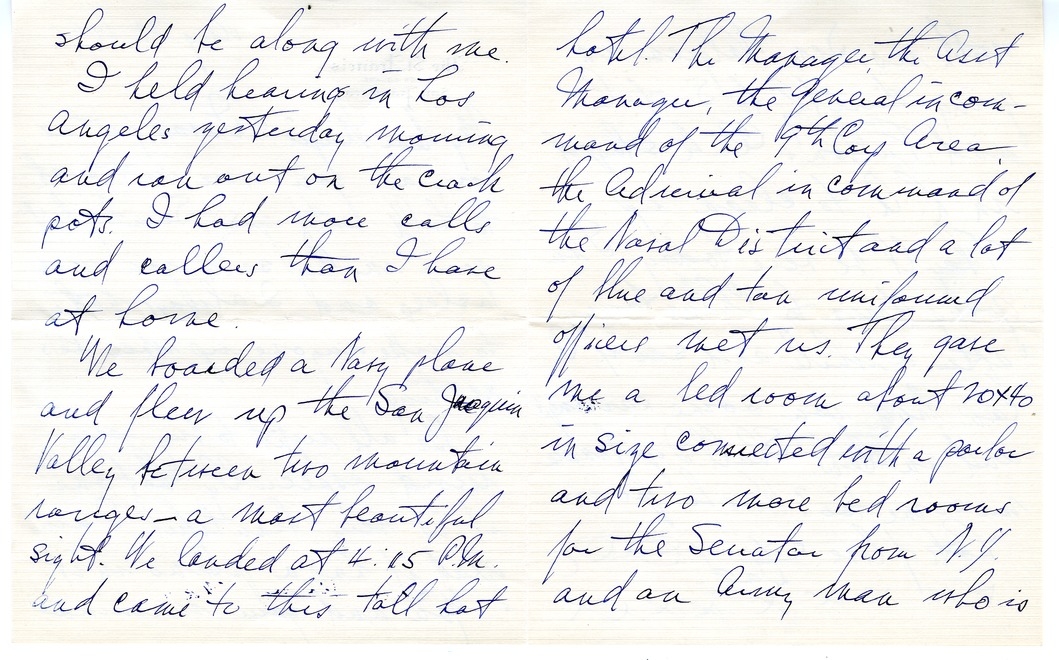 should be along with me.
I held hearings in Los
Angeles yesterday morning
and ran out on the crack
pots. I had more calls
and callers than I have
at home.
We boarded a Navy plane
and flew up the San Joaquin
Valley between two mountain
ranges—a most beautiful
sight. We landed at 4:15 P.M.
and came to this tall hot
hotel. The Manager, the Asst
Manager, the General in com-
mand of the 9th Corp Area,
the Admiral in command of
the Naval District and a lot
of blue and tan uniformed
officers met us. They gave
me a bed room about 20x40
in size connected with a parlor
and two more bed rooms
for the Senator from N.Y.
and an Army man who is